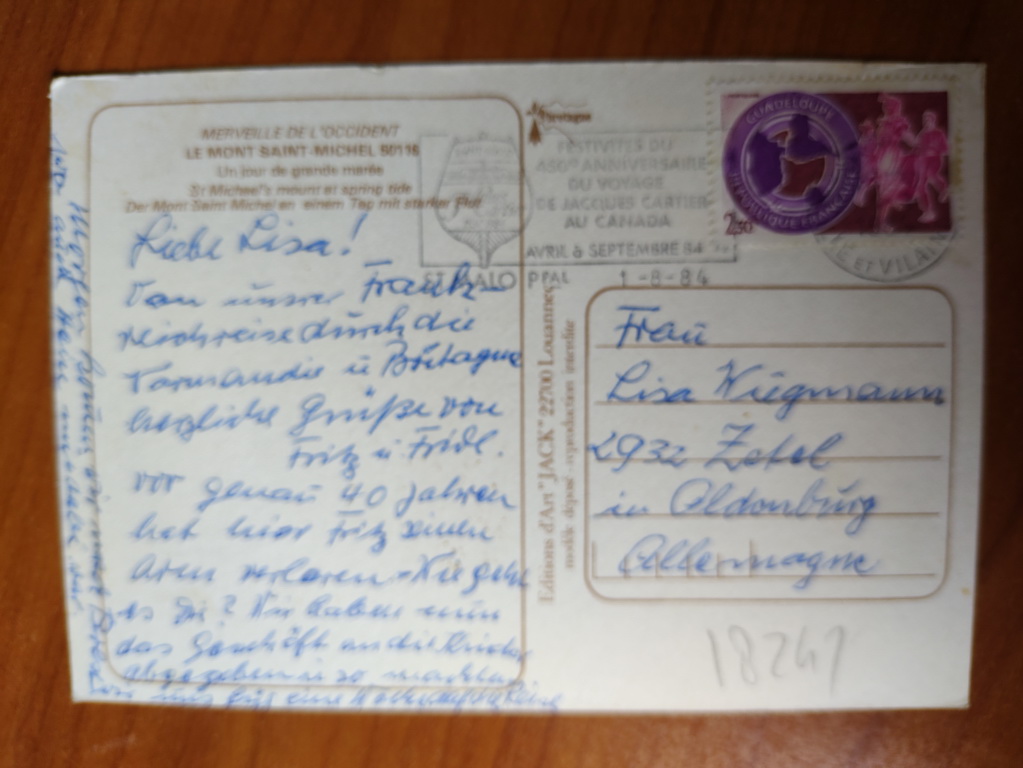 MERVEILLE DE L'OCCIDENT
LE MONT SAINT-MICHEL 50116
Un jour de grande marée
St Michael's mount at spring tide
Der Mont Saint Michel an einem Tag mit starker Flut
Bretagne
FESTIVITÉS DU
450e ANNIVERSAIRE
DU VOYAGE
DE JACQUES CARTIER
AU CANADA
AVRIL à SEPTEMBRE 84
ST MALO PPAL 1-8-84
ET VILAINE
GUADELOUPE
RÉPUBLIQUE FRANÇAISE
2,30
Liebe Lisa!
Von unsrer Frank-
reichreise durch die
Normandie u Bretagne
herzliche Grüße von
Fritz u Fridl.
Vor genau 40 Jahren
hat hier Fritz einen
Arm verloren - Wie geht
es Dir? Wir haben nun
das Geschäft an die Kinder
abgegeben u so
wir uns auf eine
Morgen
Editions d'Art "JACK" 22700 Louannec
modèle déposé - reproduction interdite
Frau
Lisa Wiegmann
2932 Zetel
in Oldenburg
Allemagne
18247